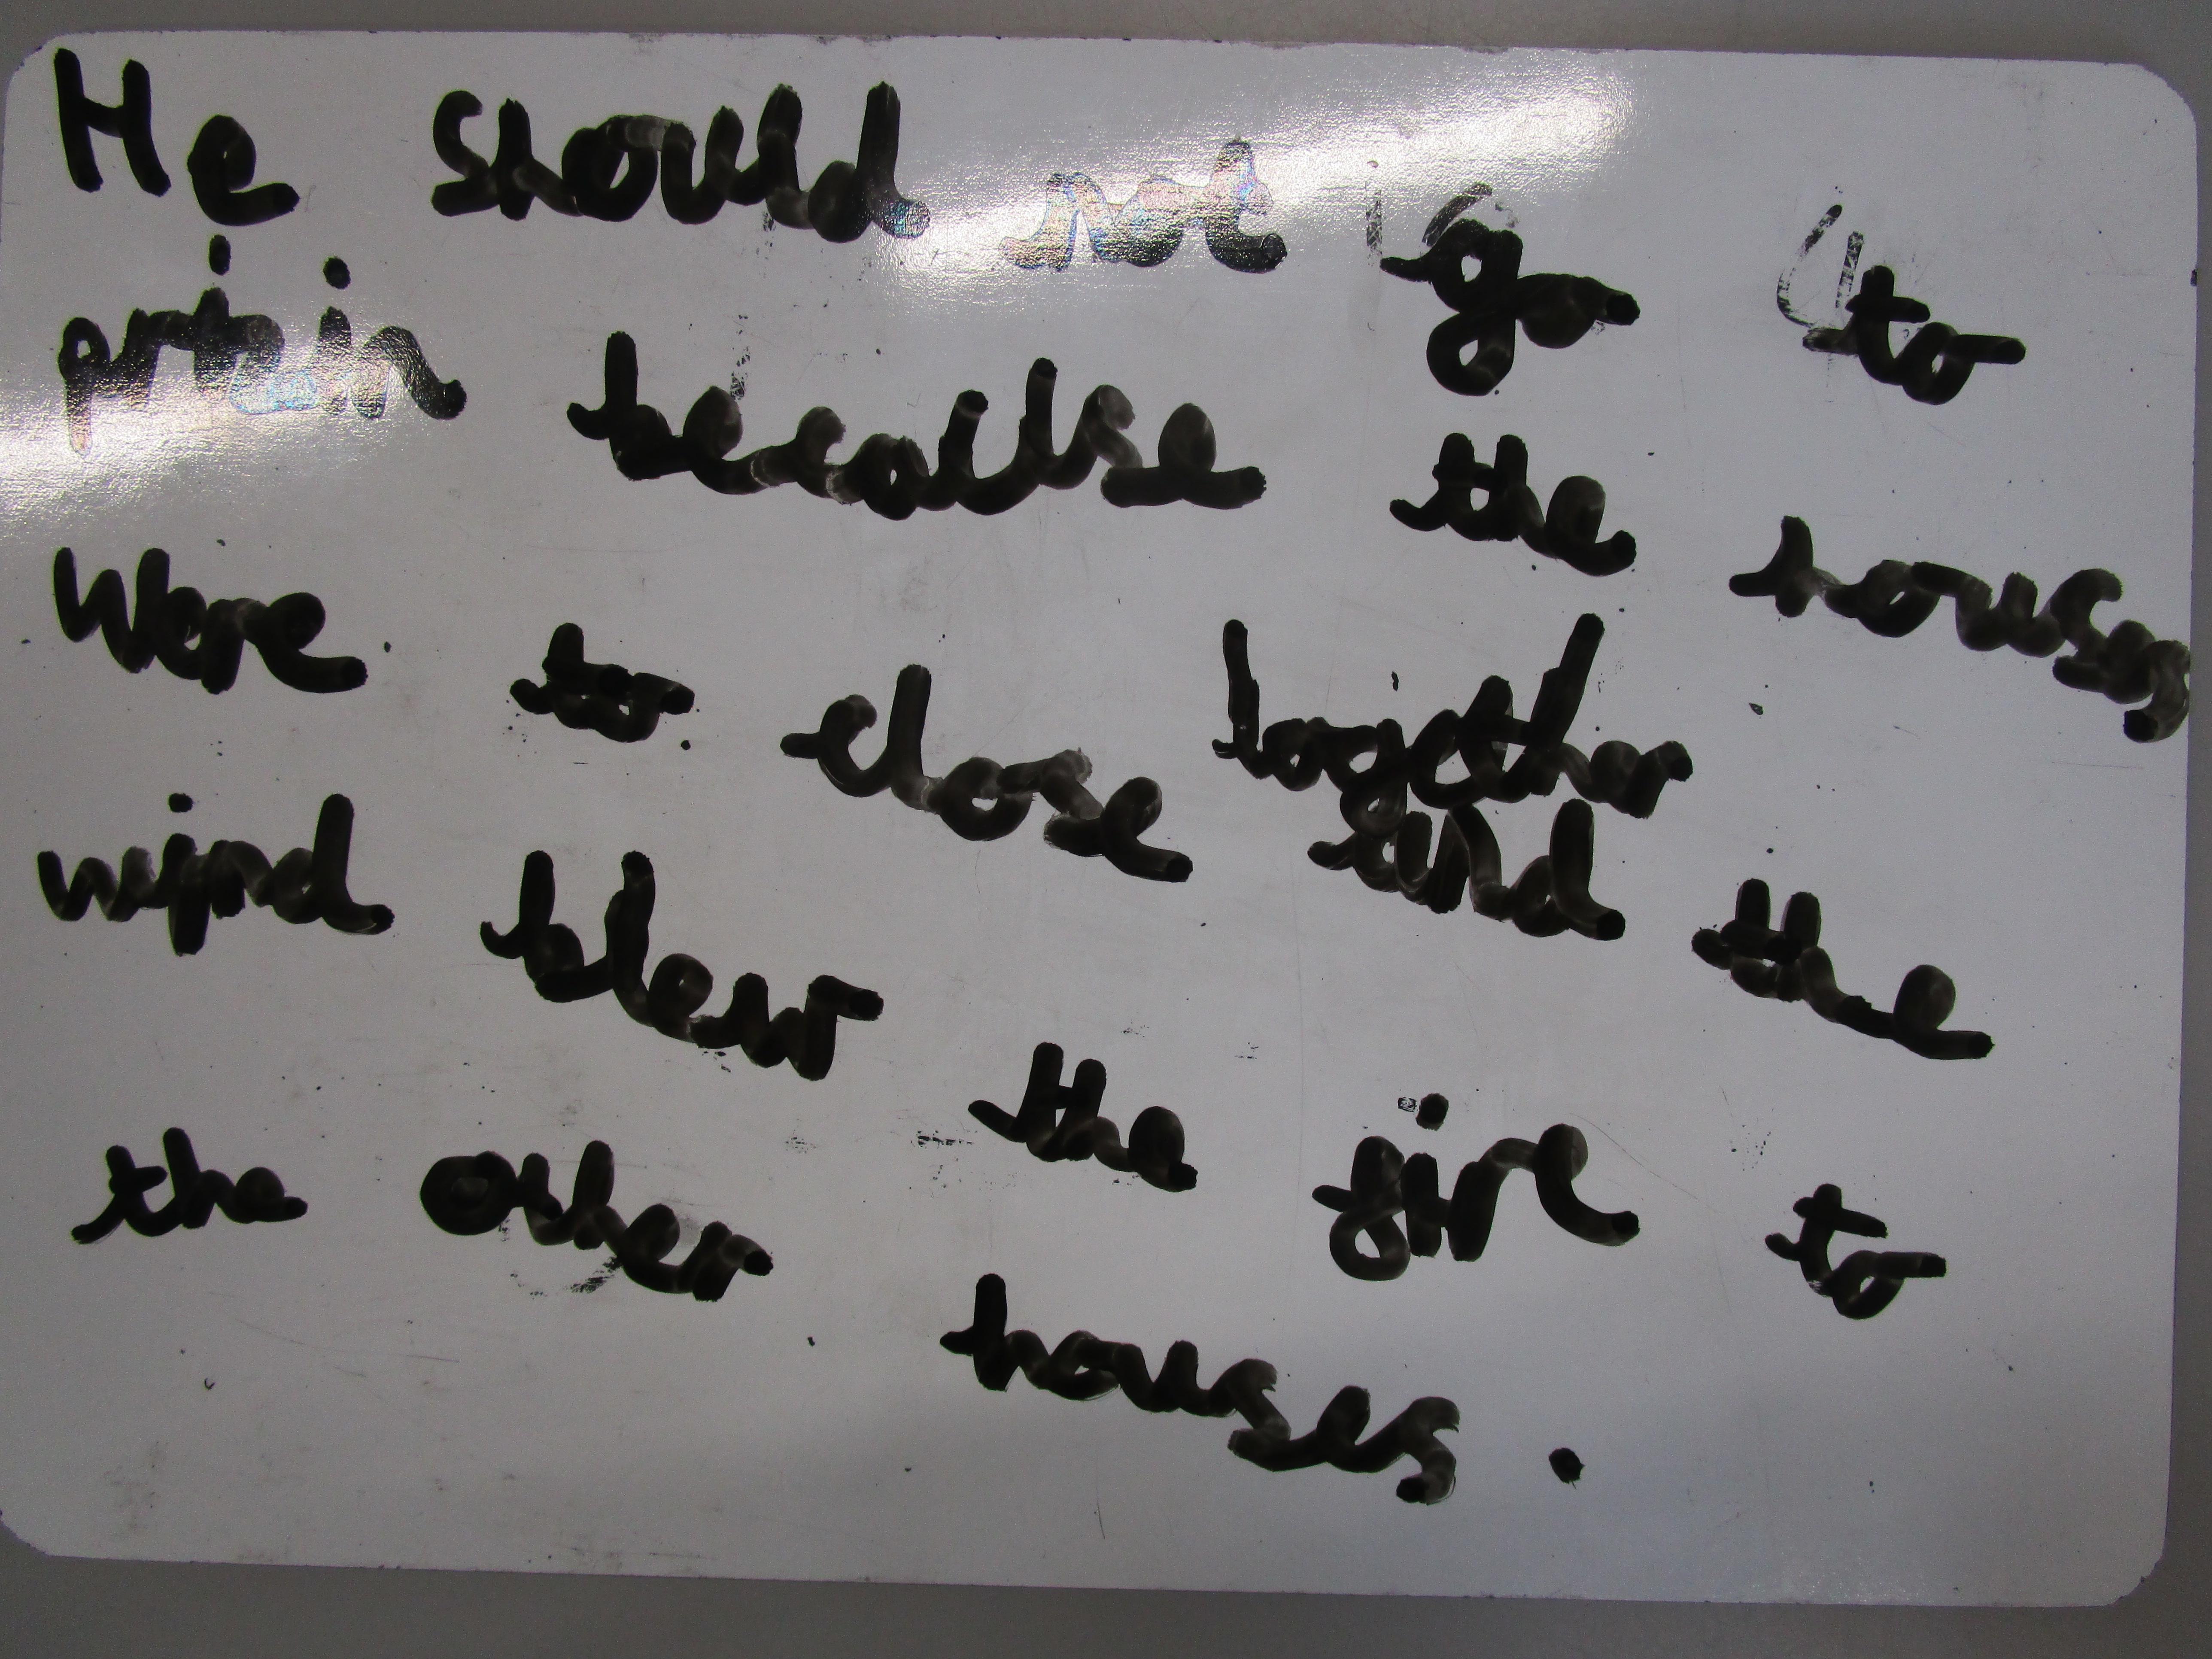 He should not go to
prisin because the houses
Were to close together and the
wind blew the fire to
the other houses.